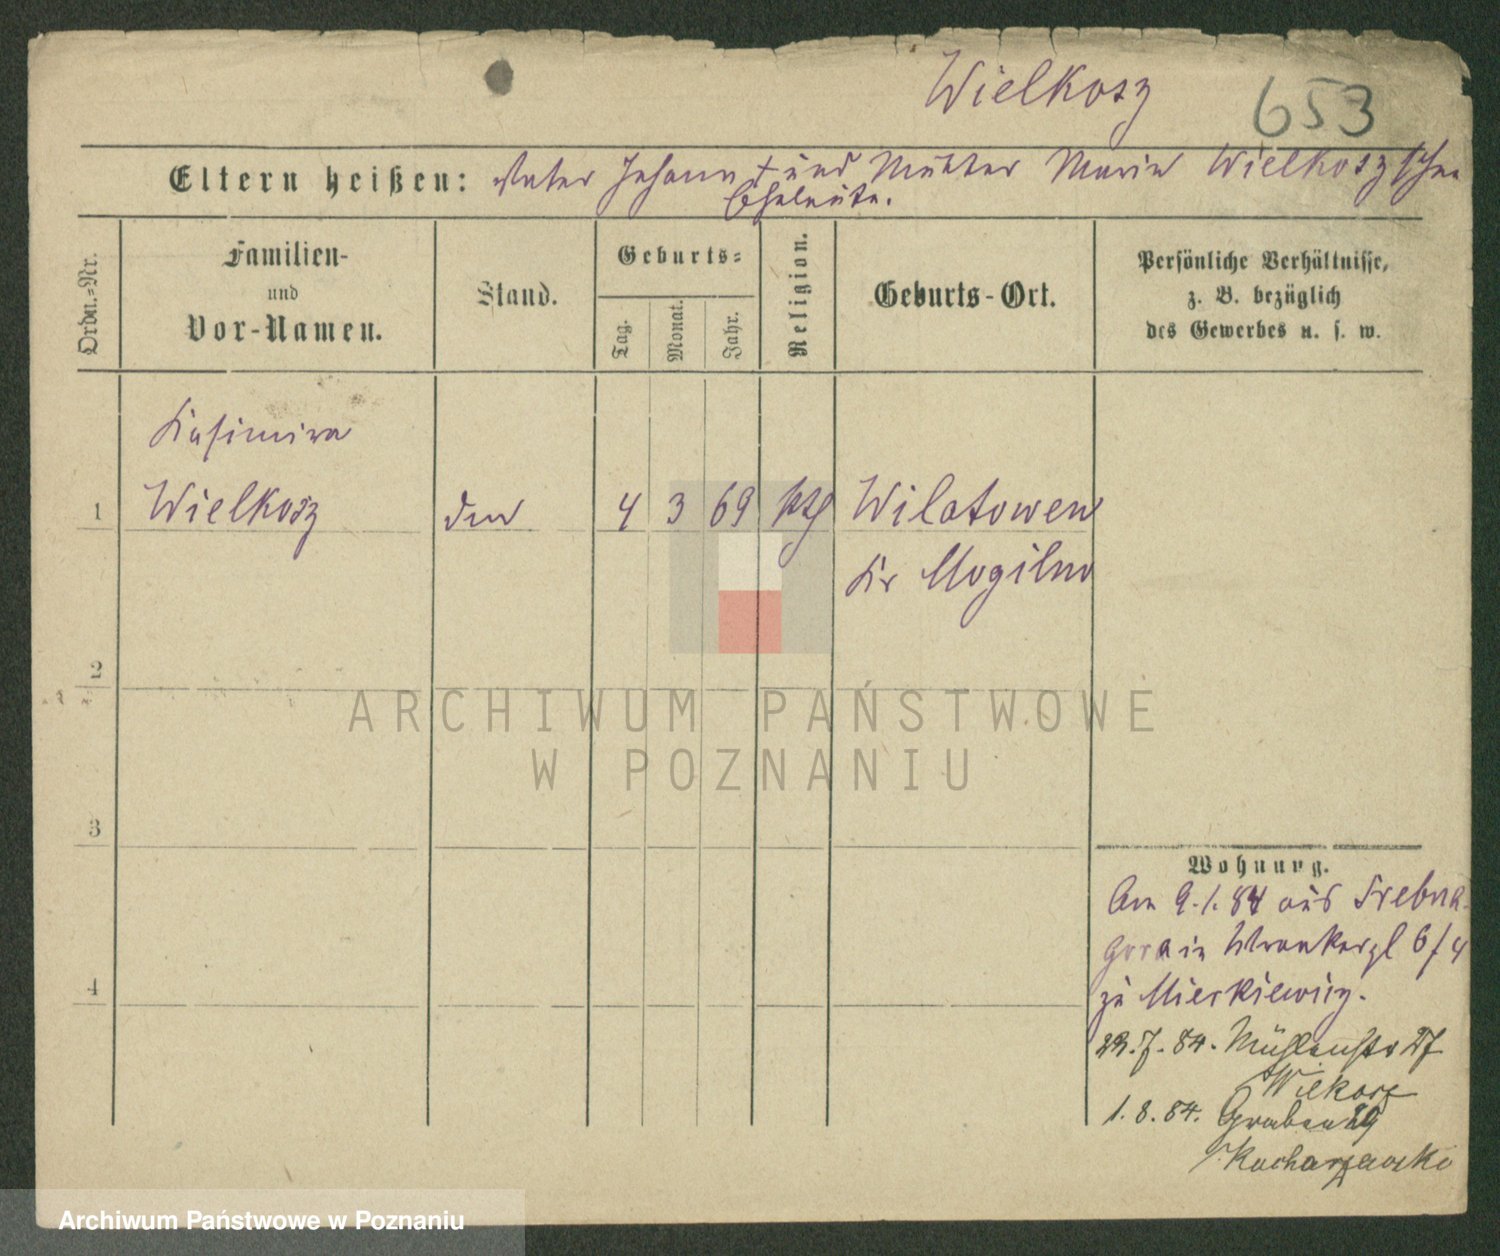 Wielkosz
653
Eltern heißen: Vater Johann † und Mutter Maria Wielkosz'schen
Eheleute.
Ordn.-Nr.
Familien-
und
Vor-Namen.
Stand.
Geburts-
Tag.
Monat.
Jahr.
Religion.
Geburts-Ort.
Persönliche Verhältnisse,
z. B. bezüglich
des Gewerbes u. s. w.
Kasimira
1 Wielkosz 4 3 69 kth Wilatowen
Kr Mogilno
2
3
4
Wohnung.
Am 9.1.84 aus Srebna
gora in Wronkerpl 6/4
zu Mierkiewicz.
22.7.84. Mühlenstr 27
Wilkosz
1.8.84. Graben 29
Kucharzewski
ARCHIWUM PAŃSTWOWE
W POZNANIU
Archiwum Państwowe w Poznaniu